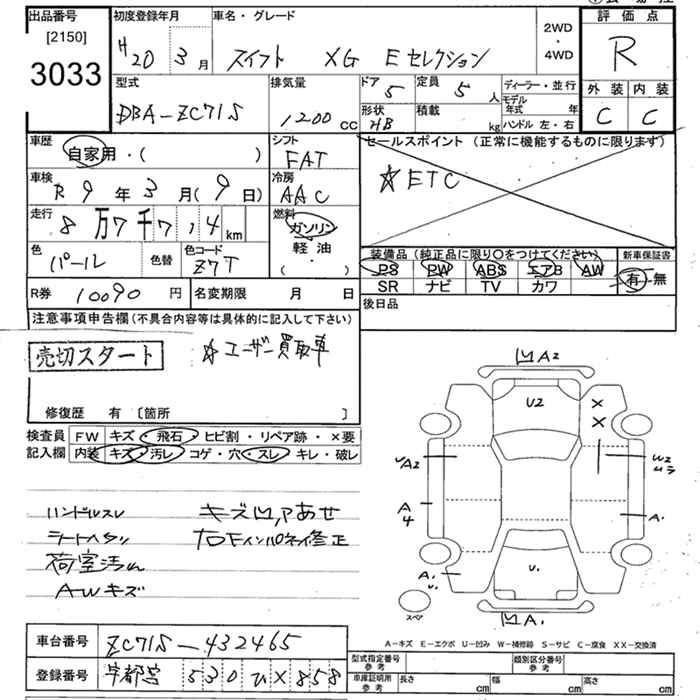 出品番号
[2150]
3033
初度登録年月
H20 3月
車名・グレード
スイフト XG Eセレクション
2WD
・
4WD
評価点
R
外装 内装
C C
型式
DBA-ZC71S
排気量
1200cc
ドア 5
定員 5人
形状 HB
積載 kg
ディーラー・並行
モデル年式 年
ハンドル 左・右
車歴
自家用・( )
シフト
FAT
セールスポイント (正常に機能するものに限ります)
☆ETC
車検
R 9年3月(9日)
冷房
AAC
走行
8万7千7 4km
燃料
ガソリン
軽・油
( )
色
パール
色替
色コード
Z7T
装備品 (純正品に限り○をつけてください)
PS PW ABS エアB AW
SR ナビ TV カワ
新車保証書
有-無
R券 10090円
名変期限 月 日
後日品
注意事項申告欄(不具合内容等は具体的に記入して下さい)
売切スタート
☆ユーザー買取車
修復歴 有 〔箇所 〕
検査員
記入欄
FW キズ・飛石・ヒビ割・リペア跡・×要
内装 キズ・汚レ・コゲ・穴・スレ・キレ・破レ
ハンドルスレ
シートヘタリ
荷室汚れ
AWキズ
キズ凹アあせ
右Fインパネイ修正
凹A2
U2
X
X
A2
W2
ムラ
A
4
A.
A.
U.
凹A1.
スペア
A-キズ E-エクボ U-凹み W-補修跡 S-サビ C-腐食 XX-交換済
車台番号 ZC71S-432465
登録番号 宇都宮 530 ひ×858
型式指定番号
参考
類別区分番号
参考
車庫証明用
参考
長さ cm
幅 cm
高さ cm